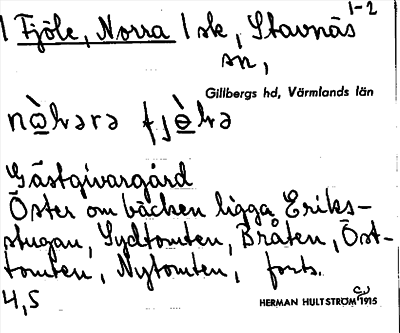 1-2
1 Fjöle, Norra 1 sk, Stavnäs
sn,
Gillbergs hd, Värmlands län
Gästgivargård
Öster om bäcken ligga Eriks-
stugan, Sydtomten, Bråten, Öst-
tomten, Nytomten, forts.
4,5
HERMAN HULTSTRÖM 1915